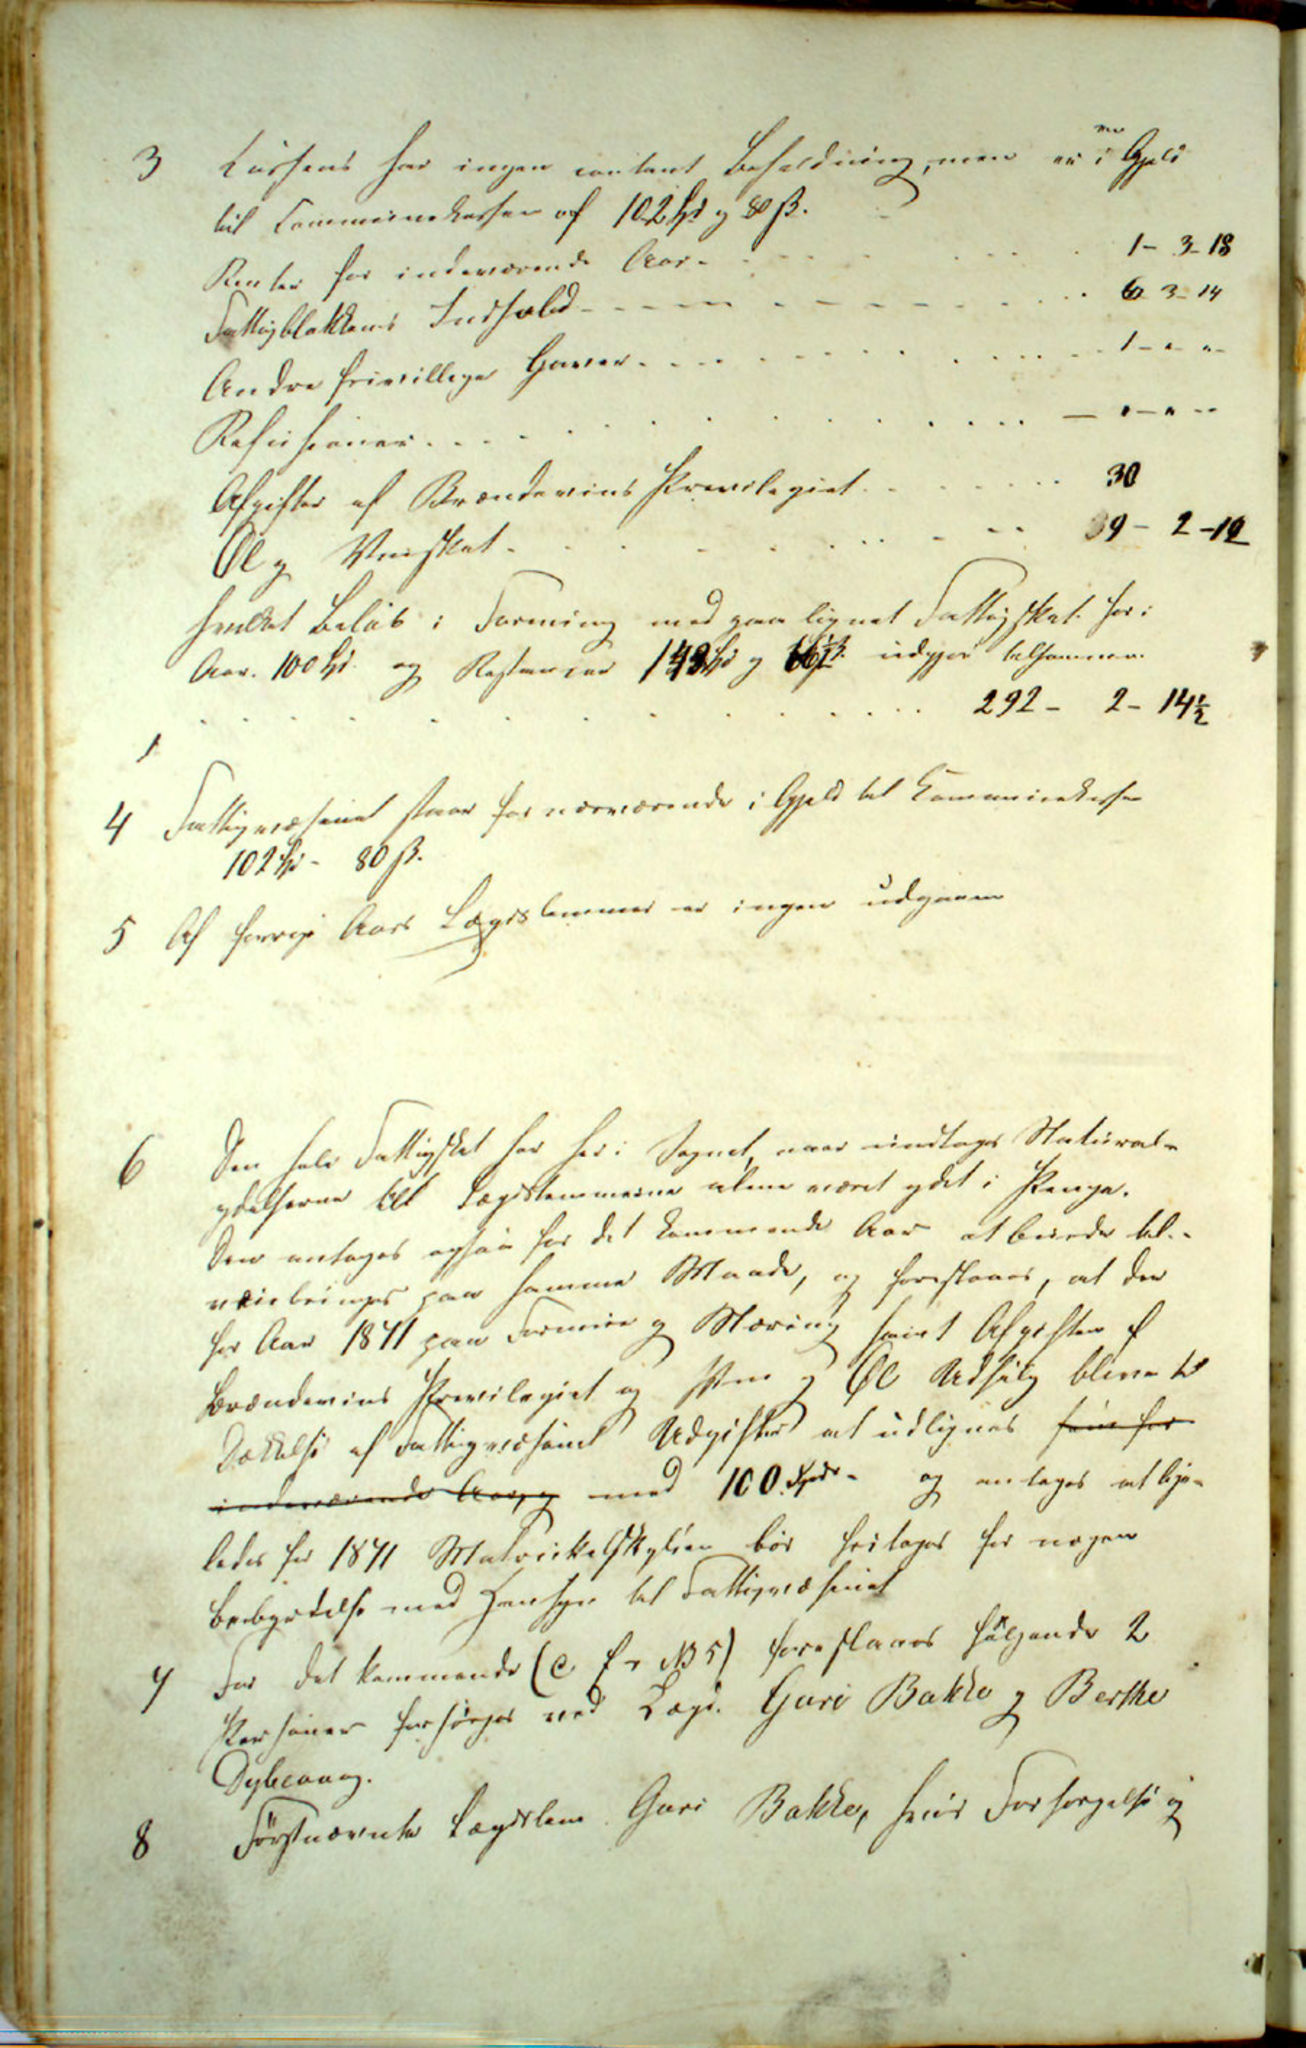 3 Cassens har ingen contant Beholdning, men er i Gjeld
til Communekassen af 102 Spd og 80 ß.
Renter for indeværende Aar - . . . 1 - 3 - 18
Fattigblokkens Indhold - - - - - - - . . 6 3 - 14
Andre frivillige Gaver . . . . . . . . 1 - " - "
Refusioner . . . . . . . . . — " - " - "
Afgifter af Brændeviins Previlegiet . . . . . . 30
Øl og Viinskat . . . . . . . 39 - 2 - 12
hvilket Beløb i Forening med paalignet Fattigskat for i
Aar. 100 Spd. og Restancer 148 Spd og 16½ ß. udgjør tilsammen
. . . . . . . . . . . . . 292 - 2 - 14½
4 Fattigvæsenet staar for nærværende i Gjeld til Communekassen
102 Spd - 80 ß.
5 Af forrige Aars Lægdslemmer er ingen udgaaen
6 Den hele Fattigskat har her i Sognet, naar undtages Natural-
ydelserne til Lægdslemmerne alene været ydet i Penge.
Den antages ogsaa for det kommende Aar at burde til-
veiebringes paa samme Maade, og foreslaaes, at der
for Aar 1841 paa Formue og Næring samt Afgiften af
Brændeviins Previlegiet og Viin og Øl Udsalg blive til
Dækkelse af Fattigvæsenets Udgifter at udlignes som for
indeværende Aar, og med 100 Spdr - og antages at lige-
ledes for 1841 Matrickelskylden bør fritages for nogen
Bebyrdelse med Hensyn til Fattigvæsenet
7 For det kommende (c f r N 5) foreslaaes følgende 2
Personer forsørges ved Lægd. Guri Bakke og Berthe
Dybvaag.
8 Førstnævnte Lægdslem Guri Bakke, hvis Forsørgelse og